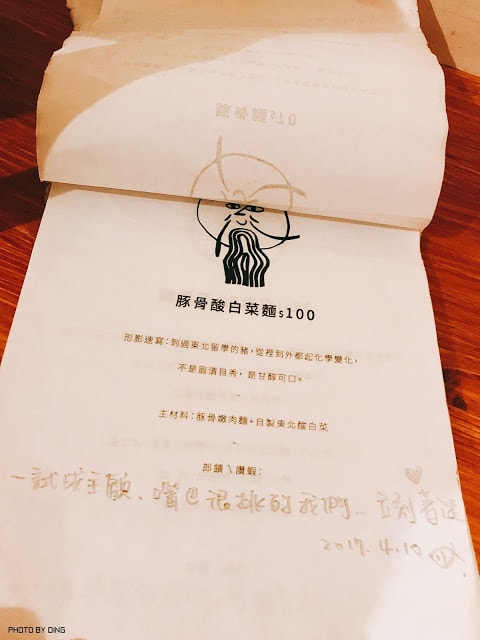 豚骨麵$70
豚骨酸白菜麵$100
形影速寫:到過東北留學的豬,從裡到外都起化學變化,
不是眉清目秀,是甘醇可口。
-
主材料:豚骨嫩肉麵+自製東北酸白菜
-
郎讀\讚蝦:
一試成主顧、嘴巴很挑的我們.. 立刻著迷
2017. 4.10
PHOTO BY DING